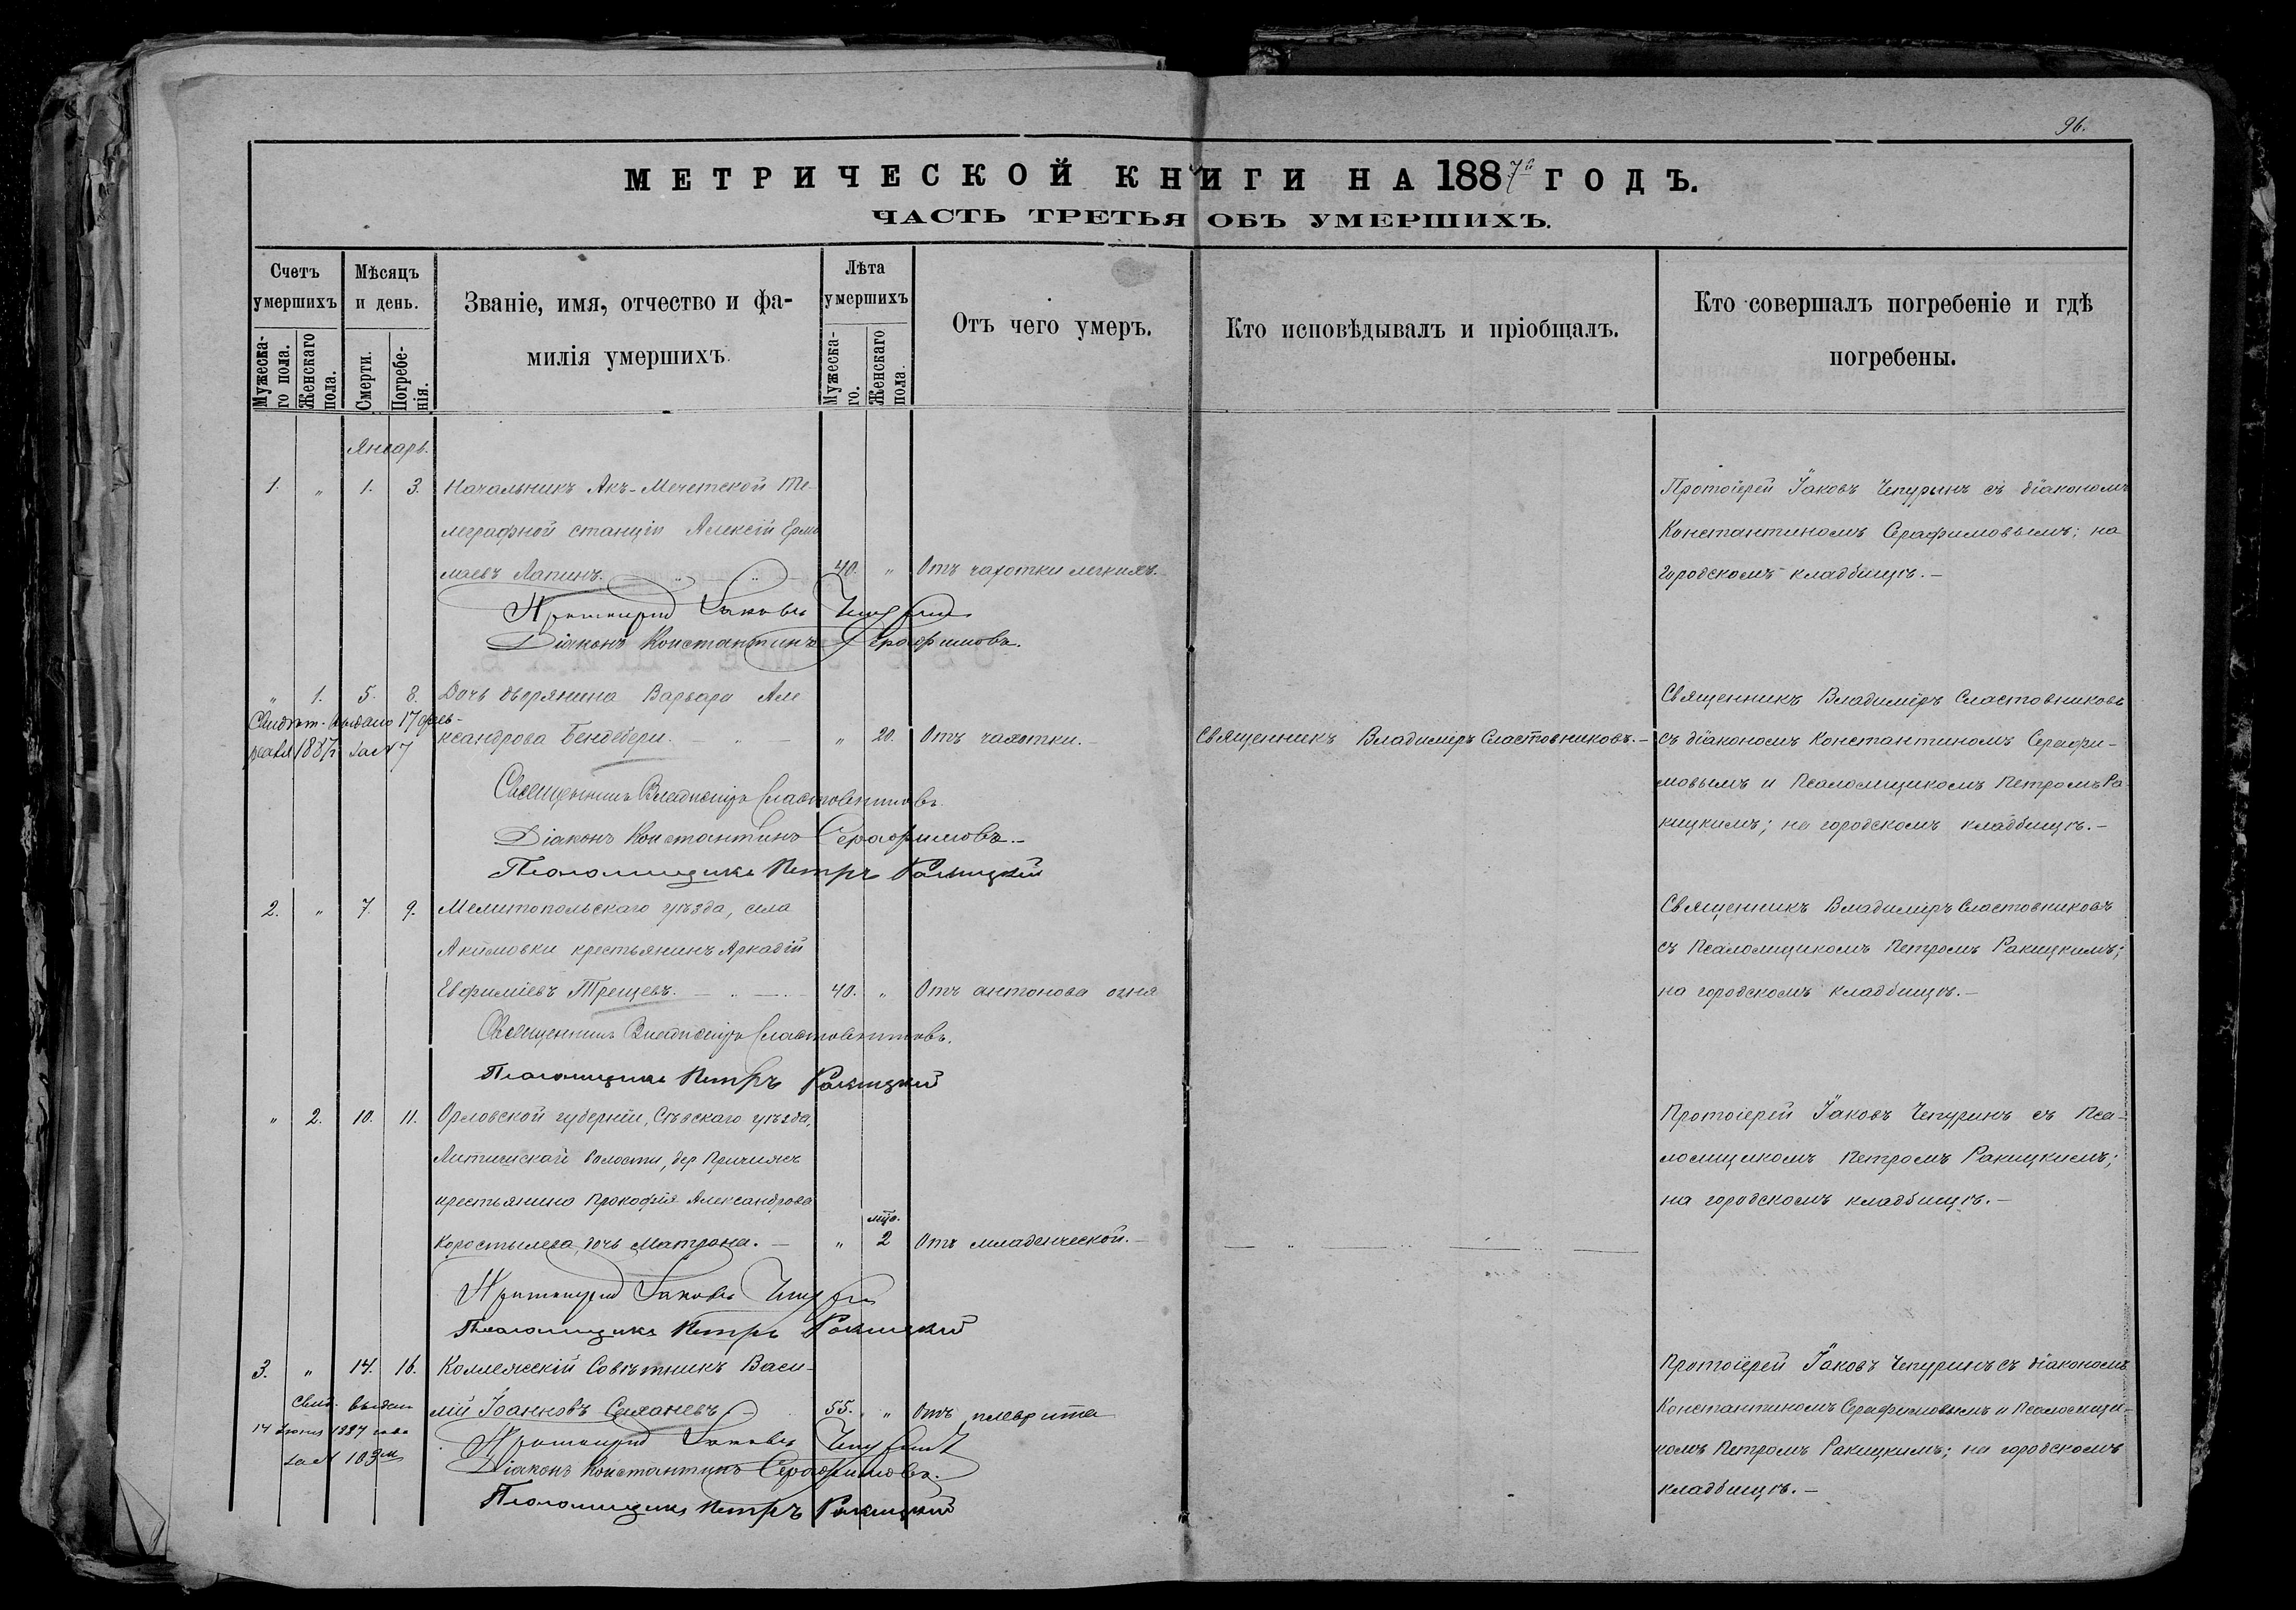 96.
МЕТРИЧЕСКОЙ КНИГИ НА 1887й ГОДЪ.
ЧАСТЬ ТРЕТЬЯ ОБЪ УМЕРШИХЪ.
Счетъ умершихъ
Мужеска-го пола.
Женскаго пола.
Мѣсяцъ и день.
Смерти.
Погребе-нія.
Званіе, имя, отчество и фа-
милія умершихъ.
Лѣта умершихъ
Мужеска-го.
Женскаго пола.
Отъ чего умеръ.
Кто исповѣдывалъ и пріобщалъ.
Кто совершалъ погребеніе и гдѣ
погребены.
Январь.
1. " 1. 3. Начальникъ Акъ-Мечетской Те-
леграфной станціи Алексѣй Ермо
лаевъ Лапинъ. 40. " Отъ чахотки легкихъ.
Протоіерей Іаковъ Чепуринъ съ діакономъ
Константиномъ Серафимовымъ; на
городскомъ кладбищѣ.
Протоіерей Іаковъ Чепуринъ
Діаконъ Константинъ Серафимовъ.
" 1. 5. 8. Дочь дворянина Варвара Але
ксандрова Бендебери. " 20. Отъ чахотки.
Свидѣт. выдано 17 фев-
раля 1887 за № 7
Священникъ Владиміръ Сластовниковъ.
Священникъ Владиміръ Сластовниковъ
съ діакономъ Константиномъ Серафи-
мовымъ и Псаломщикомъ Петромъ Ра
кицкимъ; на городскомъ кладбищѣ.
Священникъ Владиміръ Сластовниковъ
Діаконъ Константинъ Серафимовъ.
Псаломщикъ Петръ Ракицкій
2. " 7. 9. Мелитопольскаго уѣзда, села
Акимовки крестьянинъ Аркадій
Евфиміевъ Трещевъ. 40. " Отъ антонова огня
Священникъ Владиміръ Сластовниковъ
съ Псаломщикомъ Петромъ Ракицкимъ;
на городскомъ кладбищѣ.
Священникъ Владиміръ Сластовниковъ.
Псаломщикъ Петръ Ракицкій
" 2. 10. 11. Орловской губерніи, Сѣвскаго уѣзда,
волости, дер
крестьянина Прокофія Александрова
Коростылева дочь Матрона. " 2 Отъ младенческой.
Протоіерей Іаковъ Чепуринъ съ Пса-
ломщикомъ Петромъ Ракицкимъ;
на городскомъ кладбищѣ.
Протоіерей Іаковъ Чепуринъ
Псаломщикъ Петръ Ракицкій
3. " 14. 16. Коллежскій Совѣтникъ Васи-
лій Іоанновъ 55. " Отъ плеврита
Свид. выдан
14 1887 года
за № 103м
Протоіерей Іаковъ Чепуринъ съ діакономъ
Константиномъ Серафимовымъ и Псаломщи-
комъ Петромъ Ракицкимъ; на городскомъ
кладбищѣ.
Протоіерей Іаковъ Чепуринъ
Діаконъ Константинъ Серафимовъ.
Псаломщикъ Петръ Ракицкій